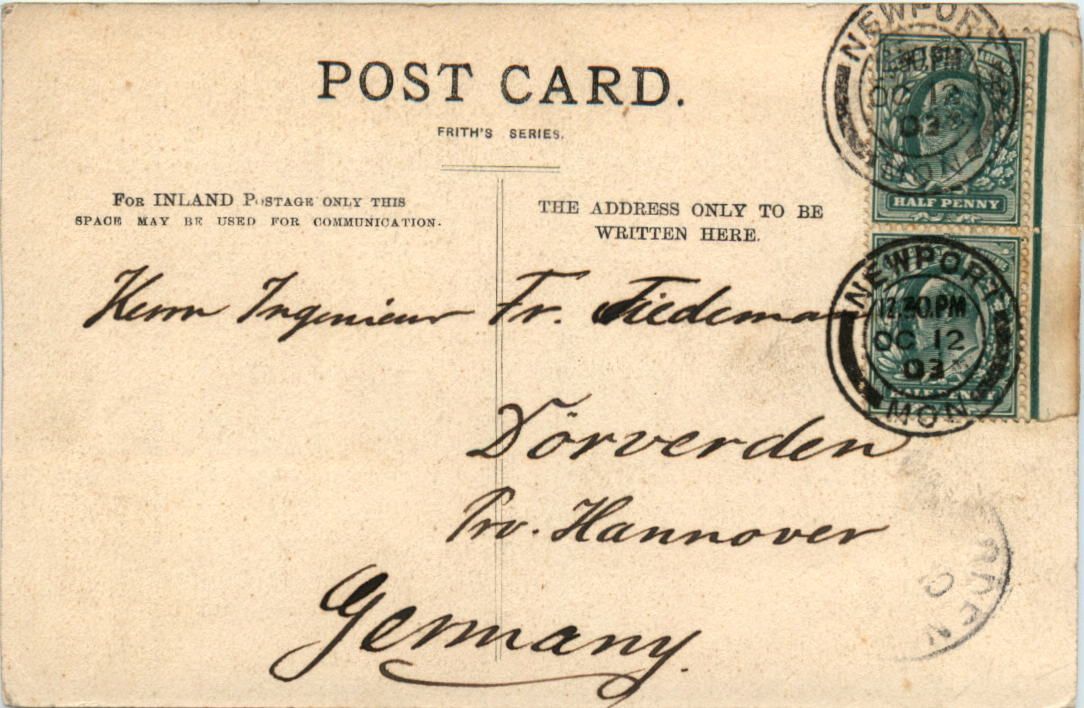 POST CARD.
FRITH'S SERIES.
FOR INLAND POSTAGE ONLY THIS
SPACE MAY BE USED FOR COMMUNICATION.
THE ADDRESS ONLY TO BE
WRITTEN HERE.
Herrn Ingenieur Fr. Tiedemann
Dörverden
Prv. Hannover
Germany.
NEWPORT
OC 12
03
MON
HALF PENNY
NEWPORT
12.30.PM
OC 12
03
MON